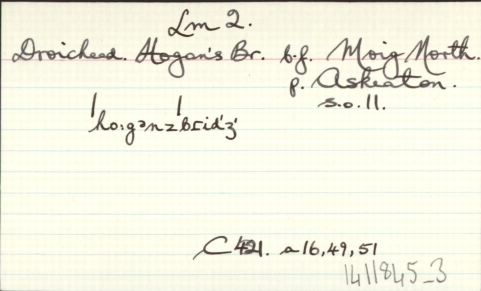 Lm 2.
Droichead. Hogan's Br. b.f. Moig North.
p. Askeaton.
s.o. 11.
ˈho:gənzˈbrid'ʒ'
C 421. a 16, 49, 51
1411845_3